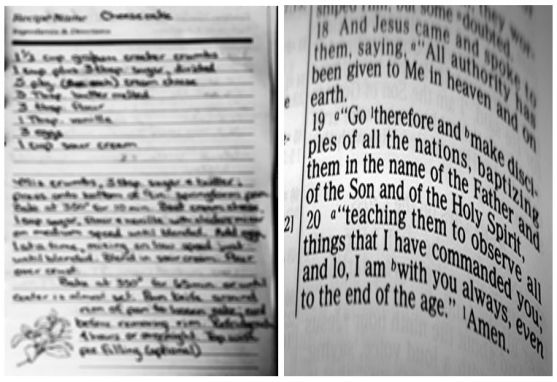 Recipe Name Cheesecake
Ingredients & Directions
1 1/2 cup graham cracker crumbs
1 cup plus 3 tbsp. sugar, divided
5 pkg cream cheese
5 Tbsp. butter melted
3 tbsp flour
1 Tbsp. vanilla
3 eggs
1 cup sour cream
Mix crumbs, 3 tbsp sugar & butter;
press onto bottom of 9in springform pan
Bake at 350° for 10 min. Beat cream cheese,
1 cup sugar, flour & vanilla with electric mixer
on medium speed until blended. Add eggs,
1 at a time, mixing on low speed just
until blended. Blend in sour cream. Pour
over crust.
Bake at 350° for 65min. or until
center is almost set. Run knife around
rim of pan to loosen cake, cool
before removing rim. Refrigerate
4 hours or overnight. Top with
pie filling (optional)
some doubted.
18 And Jesus came and spoke to
them, saying, a"All authority has
been given to Me in heaven and on
earth.
19 a"Go 1therefore and bmake disci-
ples of all the nations, baptizing
them in the name of the Father and
of the Son and of the Holy Spirit,
20 a"teaching them to observe all
things that I have commanded you;
and lo, I am bwith you always, even
to the end of the age." 1Amen.